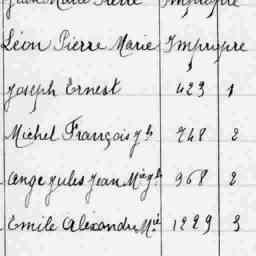 Jean Marie Pierre Impropre
Léon Pierre Marie Impropre
Joseph Ernest 423 1
Michel François Je 748 2
Ange Jules Jean Mie Je 968 2
Emile Alexandre Mie 1229 3